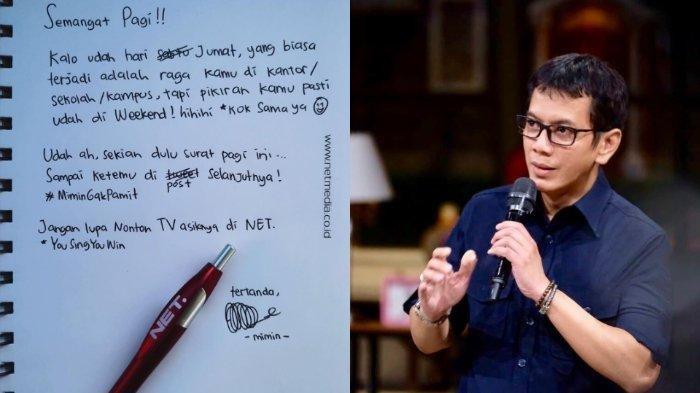 Semangat Pagi!!
Kalo udah hari Jumat, yang biasa
terjadi adalah raga kamu di kantor/
sekolah/kampus, tapi pikiran kamu pasti
udah di Weekend! hihihi *kok sama ya
Udah ah, sekian dulu surat pagi ini...
Sampai ketemu di post selanjutnya!
#MiminGakPamit
Jangan lupa Nonton TV asiknya di NET.
*YouSingYouWin
tertanda,
-mimin-
NET.
www.netmedia.co.id